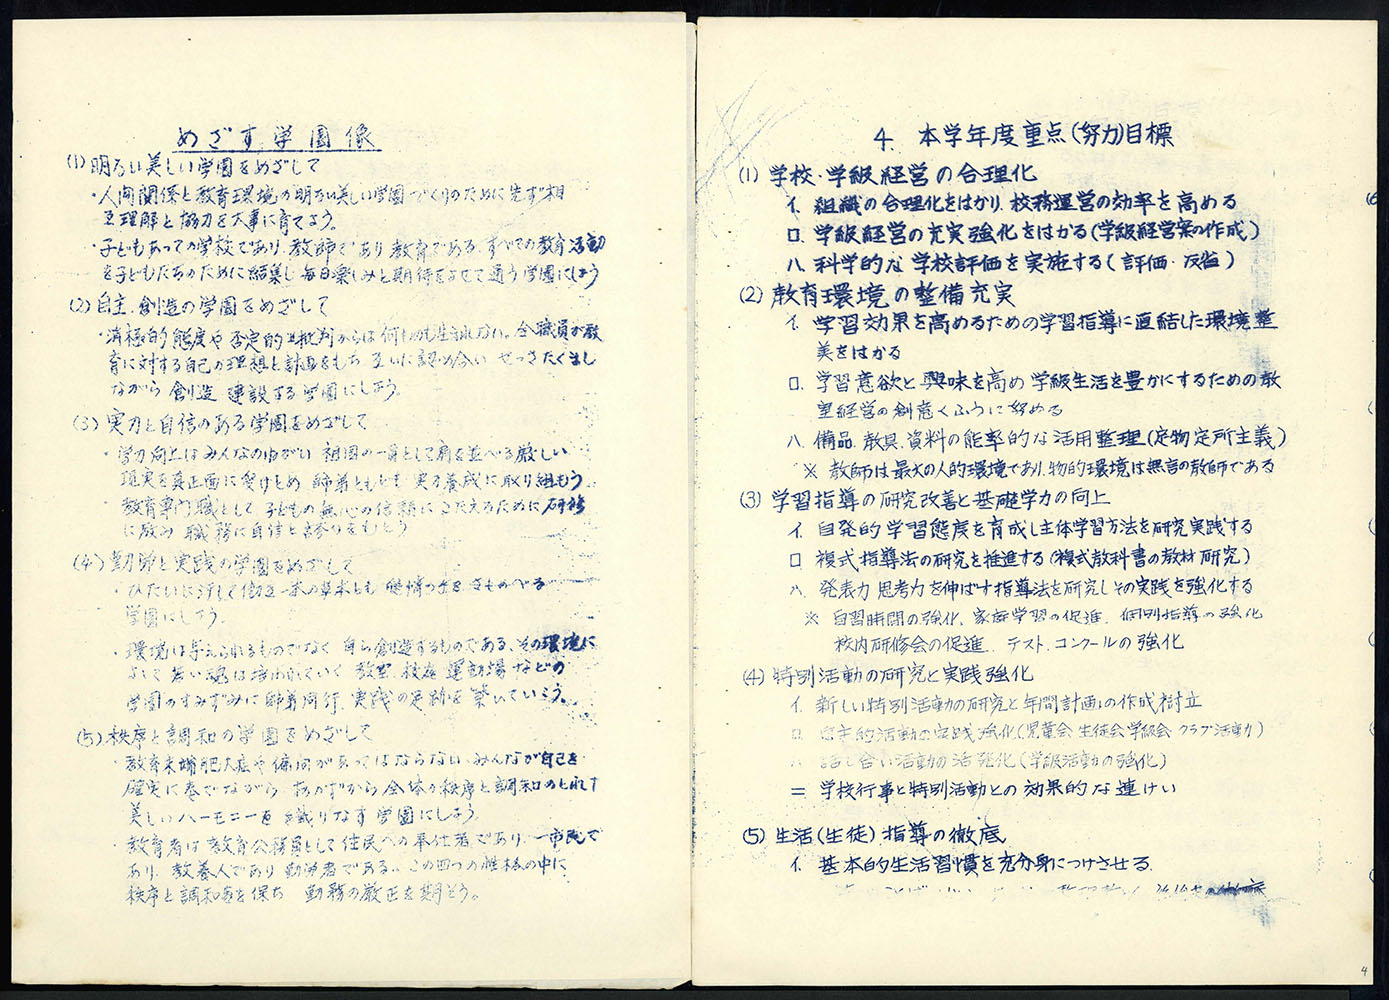 めざす学園像
(1) 明るい美しい学園をめざして
・人間関係と教育環境の明るい美しい学園づくりのために先ず相
互理解と協力を大事に育てよう。
・子どもあっての学校であり、教師であり教育である。すべての教育活動
を子どもたちのために結集し毎日楽しみと期待をよせて通う学園にしよう
(2) 自主、創造の学園をめざして
・消極的態度や否定的な批判からは何ものも生まれない。全職員が教
育に対する自己の理想と計画をもち 互いに認め合い せっさたくまし
ながら 創造 建設する学園にしよう。
(3) 実力と自信のある学園をめざして
・学力向上はみんなのねがい 祖国の一員として肩を並べる厳しい
現実を真正面に受けとめ 師弟ともども 実力養成に取り組もう
・教育専門職として 子どもの無心の信頼にこたえるために研修
に励み 職務に自信と誇りをもとう
(4) 勤労と実践の学園をめざして
・ひたいに汗して働き 一茶の草木とも
学園にしよう。
・環境は与えられるものでなく 自ら創造するものである。その環境に
よって若い魂は培われていく 教室 校庭 運動場などの
学園のすみずみに師弟同行、実践の足跡を築いていこう。
(5) 秩序と調和の学園をめざして
・教育末端肥大症や偏向があってはならない。みんなが自己を
確実に奏でながら おのずから全体の秩序と調和のとれ
美しいハーモニーを織りなす学園にしよう。
・教育者は教育公務員として住民への奉仕者であり 一市民で
あり、教養人であり勤労者である。この四つの性格の中に
秩序と調和を保ち 勤務の厳正を期そう。
4. 本学年度重点(努力)目標
(1) 学校・学級経営の合理化
イ. 組織の合理化をはかり、校務運営の効率を高める
ロ. 学級経営の充実強化をはかる(学級経営案の作成)
ハ. 科学的な学校評価を実施する(評価・反省)
(2) 教育環境の整備充実
イ. 学習効果を高めるための学習指導に直結した環境整
美をはかる
ロ. 学習意欲と興味を高め学級生活を豊かにするための教
室経営の創意くふうに努める
ハ. 備品、教具、資料の能率的な活用整理(定物定所主義)
※ 教師は最大の人的環境であり、物的環境は無言の教師である
(3) 学習指導の研究改善と基礎学力の向上
イ. 自発的学習態度を育成し主体学習方法を研究実践する
ロ 複式指導法の研究を推進する(複式教科書の教材研究)
ハ. 発表力 思考力を伸ばす指導法を研究しその実践を強化する
※ 自習時間の強化、家庭学習の促進、個別指導の強化
校内研修会の促進、テスト、コンクールの強化
(4) 特別活動の研究と実践強化
イ. 新しい特別活動の研究と年間計画の作成樹立
ロ. 自主的活動の実践強化(児童会 生徒会 学級会 クラブ活動)
ハ 話し合い活動の活発化(学級活動の強化)
ニ 学校行事と特別活動との効果的な連けい
(5) 生活(生徒)指導の徹底
イ. 基本的生活習慣を充分身につけさせる
4